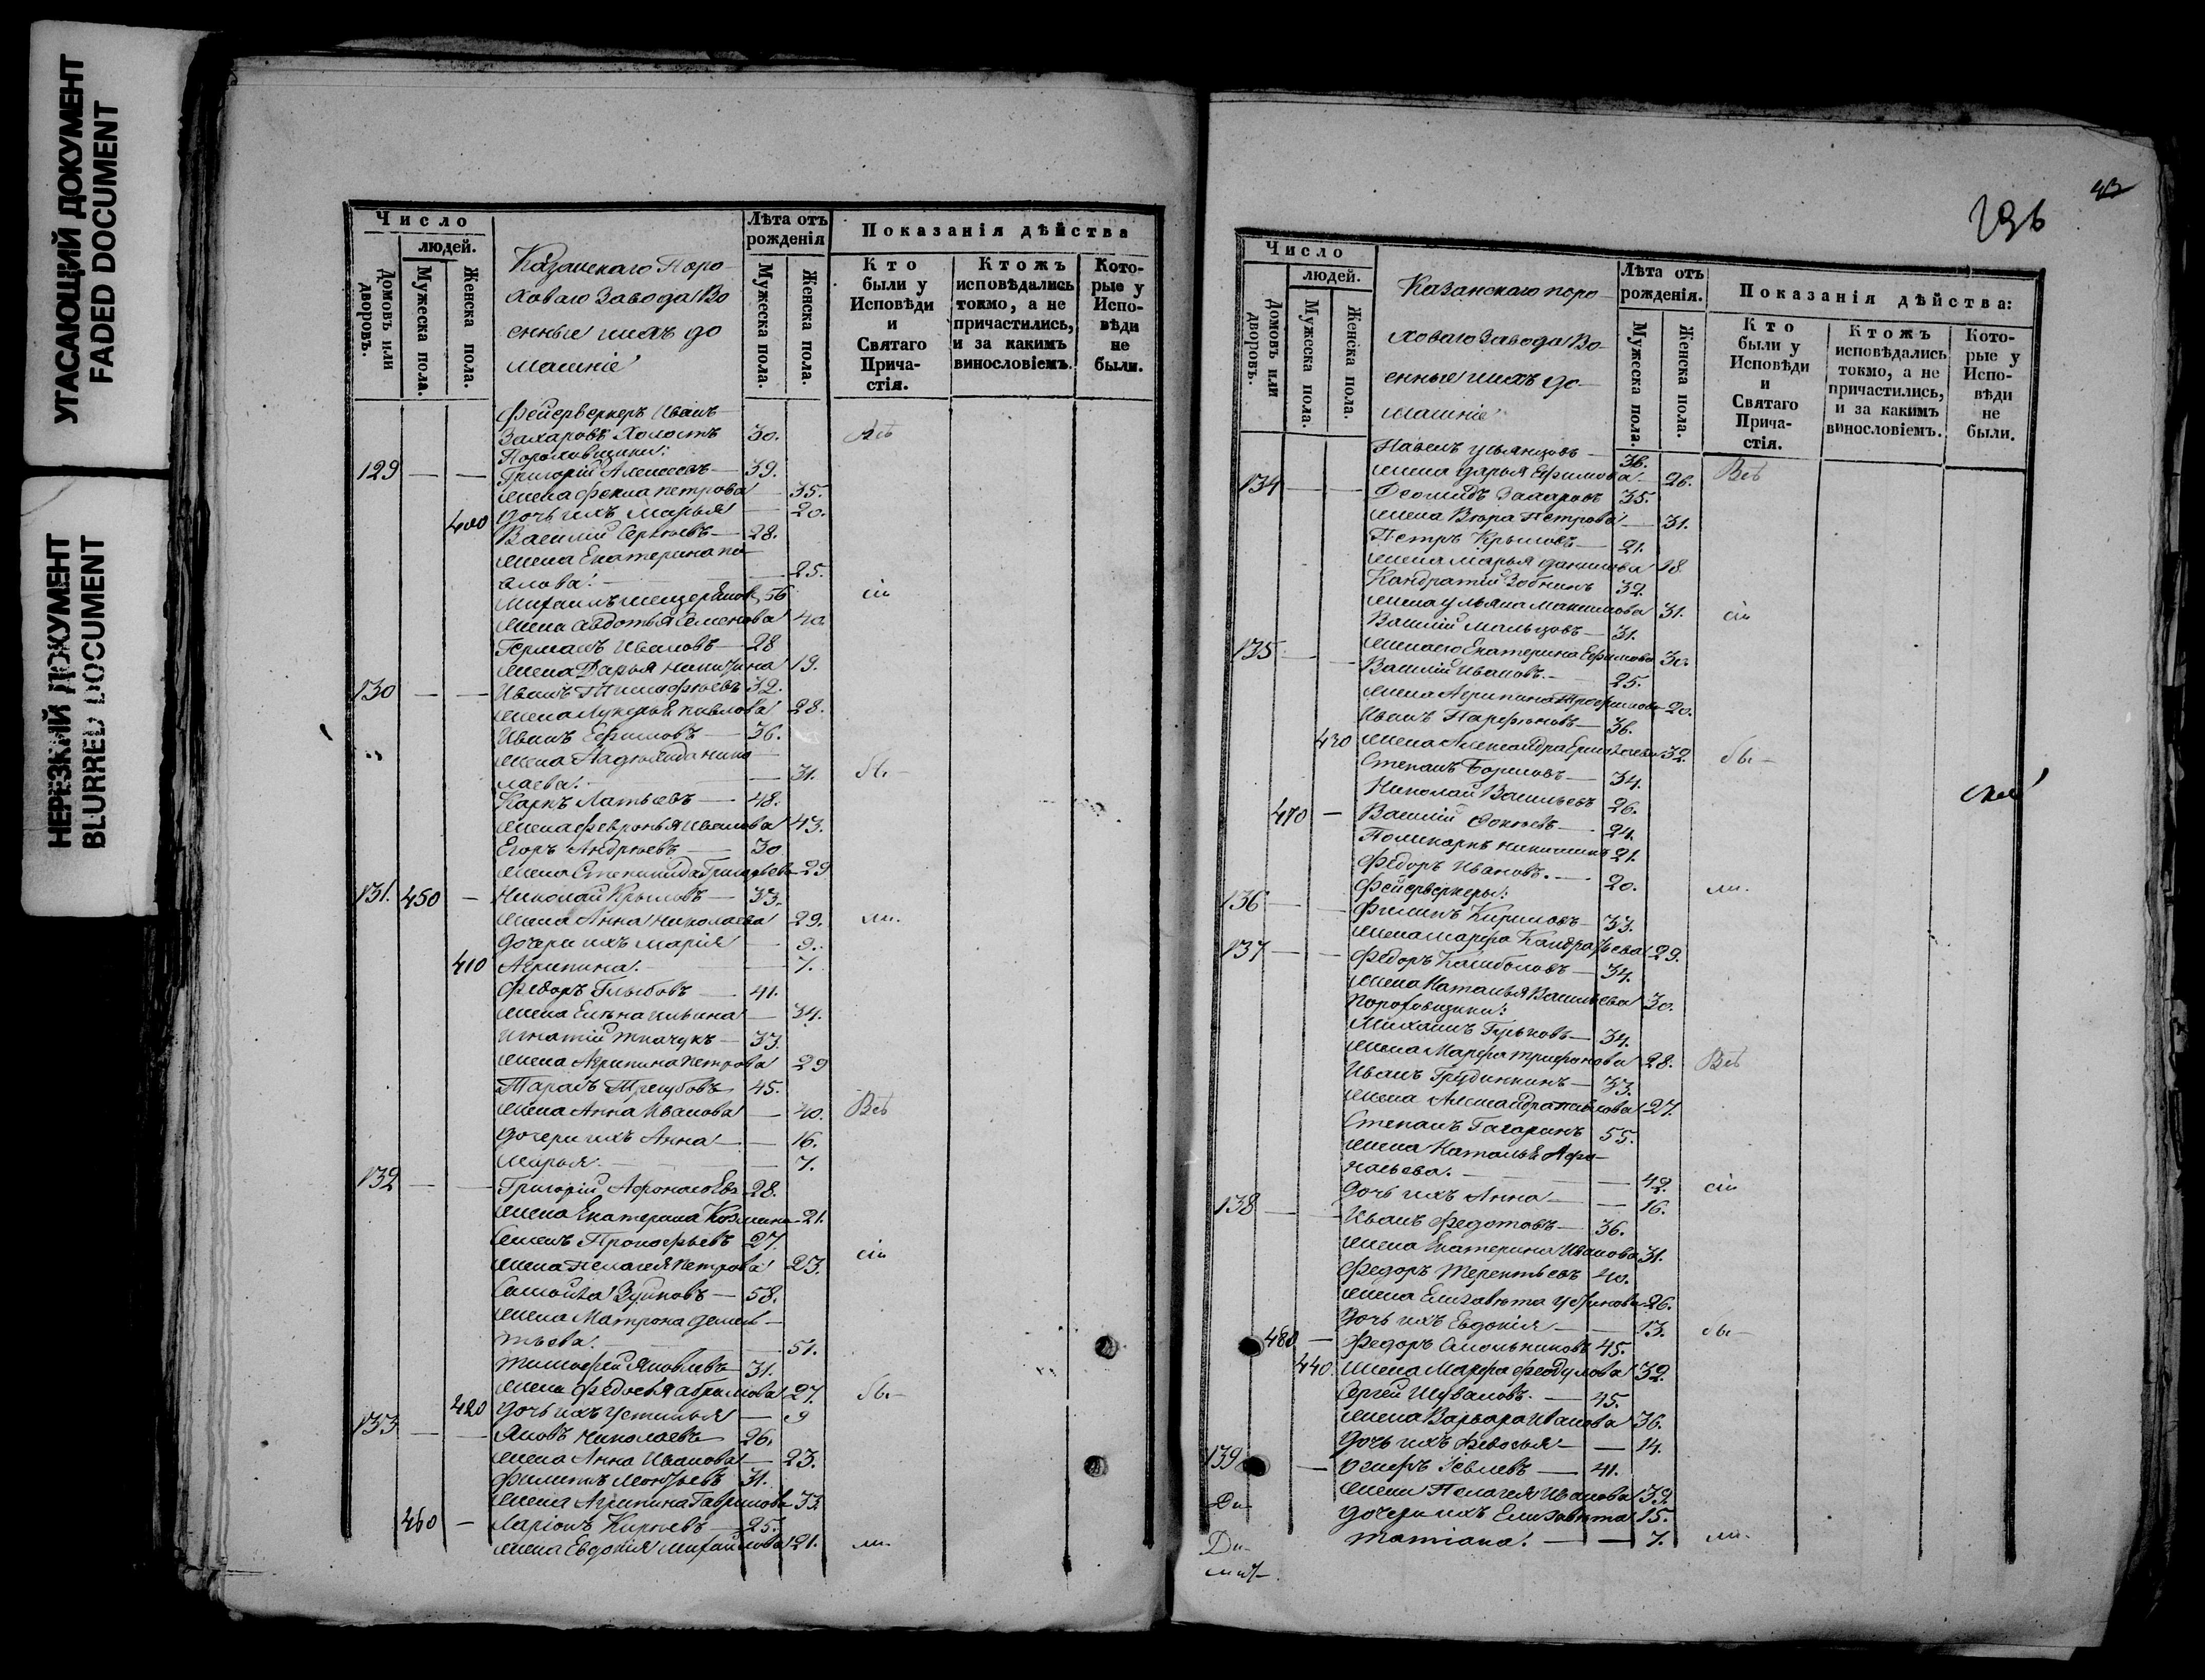 УГАСАЮЩИЙ ДОКУМЕНТ
FADED DOCUMENT
НЕРЕЗКИЙ ДОКУМЕНТ
BLURRED DOCUMENT
Число
людей.
Домовъ или дворовъ.
Мужеска пола.
Женска пола.
Казанскаго Поро-
ховаго Завода Во
енные ихъ до
машніе
Лѣта отъ рожденія
Мужеска пола.
Женска пола.
Показанія дѣйства
Кто были у Исповѣди и Святаго Прича-стія.
Ктожъ исповѣдались токмо, а не причастились, и за какимъ винословіемъ.
Кото-рые у Испо-вѣди не были.
Фейерверкеръ Иванъ
Захаровъ Холостъ 30. Всѣ
Пороховщики:
129 — — Григорій Алексеевъ — 39.
жена Фекла Петрова — 35.
400 дочь ихъ Марья — 20.
Василій Сергѣевъ — 28.
жена Екатерина
25.
Михаилъ 56 сіи
жена Авдотья Семенова 40.
Германъ Ивановъ — 28
жена Дарья Никитина 19.
130 — — Иванъ Тимофѣевъ 32.
жена Лукерья Павлова 28.
Иванъ Ефимовъ — 36.
жена Надежда Нико
лаева. — 31. бы —
Карпъ — 48.
жена Февронья Иванова 43.
Егоръ Андрѣевъ — 30
жена Степанида Григорьева 29
131. 450 — Николай Крыловъ — 33.
жена Анна Николаева 29. ли.
дочери ихъ Марія — 9.
410 Агрипина. — 7.
Федоръ Глыбовъ — 41.
жена Елѣна Ильина — 34.
Игнатій Ткачукъ — 33.
жена Агрипина Петрова 29
Тарасъ Трегубовъ 45.
жена Анна Иванова — 40. Всѣ
дочери ихъ Анна — 16.
Марья. — 7.
132 — — Григорій 28.
жена Екатерина Козмина 21.
Семенъ Прокофьевъ 27.
жена Пелагея Петрова 23. сіи
Самойла Зуйковъ — 58.
жена Матрона Демен-
тьева. — 51.
Тимофей Яковлевъ 31.
жена Федосья Абрамова 27. бы —
420 дочь ихъ Устинья — 9
133 — — Яковъ Николаевъ 26.
жена Анна Иванова — 23.
Филипъ 31.
жена Агрипина Гаврилова 33.
460 — Ларіонъ Кирѣевъ — 25.
жена Евдокія Михайлова 21. ли.
43
Число
людей.
Домовъ или дворовъ.
Мужеска пола.
Женска пола.
Казанскаго поро-
ховаго Завода Во-
енные ихъ до-
машніе
Лѣта отъ рожденія.
Мужеска пола.
Женска пола.
Показанія дѣйства:
Кто были у Исповѣди и Святаго Прича-стія.
Ктожъ исповѣдались токмо, а не причастились, и за какимъ винословіемъ.
Кото-рые у Испо-вѣди не были.
Павелъ Ульянцовъ — 36.
жена Дарья Ефимова 26. Всѣ
134 — — Захаровъ 35.
жена Вѣра Петрова — 31.
Петръ Крыловъ — 21.
жена Марья Данилова 18.
Кандратій Зобнинъ 32.
жена Ульяна Максимова 31. сіи
Василій Мальцовъ — 31.
135 — — жена его Екатерина Ефимова 30.
Василій Ивановъ. — 25.
жена Агрипина Трофимова 20.
Иванъ Парфеновъ — 36.
430 жена Александра 32. бы —
Степанъ — 34.
Николай Васильевъ 26.
470 — Василій — 24.
Поликарпъ Никитинъ 21.
Федоръ Ивановъ. — 20. ли.
Фейерверкеры:
136 — — Филипъ Кириловъ — 33.
жена Марфа Кандратьева 29.
137 — — Федоръ — 34.
жена Наталья Васильева 30.
Пороховщики:
Михаилъ Гурьковъ — 34.
жена Марфа Трифонова 28. Всѣ
Иванъ Грудинкинъ — 33.
жена Александра Павлова 27.
Степанъ Гагаринъ 55.
жена Наталья Афа-
насьева. — 42. сіи
дочь ихъ Анна — 16.
138 — — Иванъ Федотовъ — 36.
жена Екатерина Иванова 31.
Федоръ Терентьевъ 40.
жена Елизавета Устинова 26.
дочь ихъ Евдокія — 13. бы —
480 — Федоръ 45.
440. жена Марфа Феодулова 32.
Сергей Шуваловъ. — 45.
жена Варвара Иванова 36.
дочь ихъ Федосья — 14.
139 — Осипъ — 41.
жена Пелагея Иванова 39.
дочери ихъ Елизавета 15.
Татіана. — 7. ли.